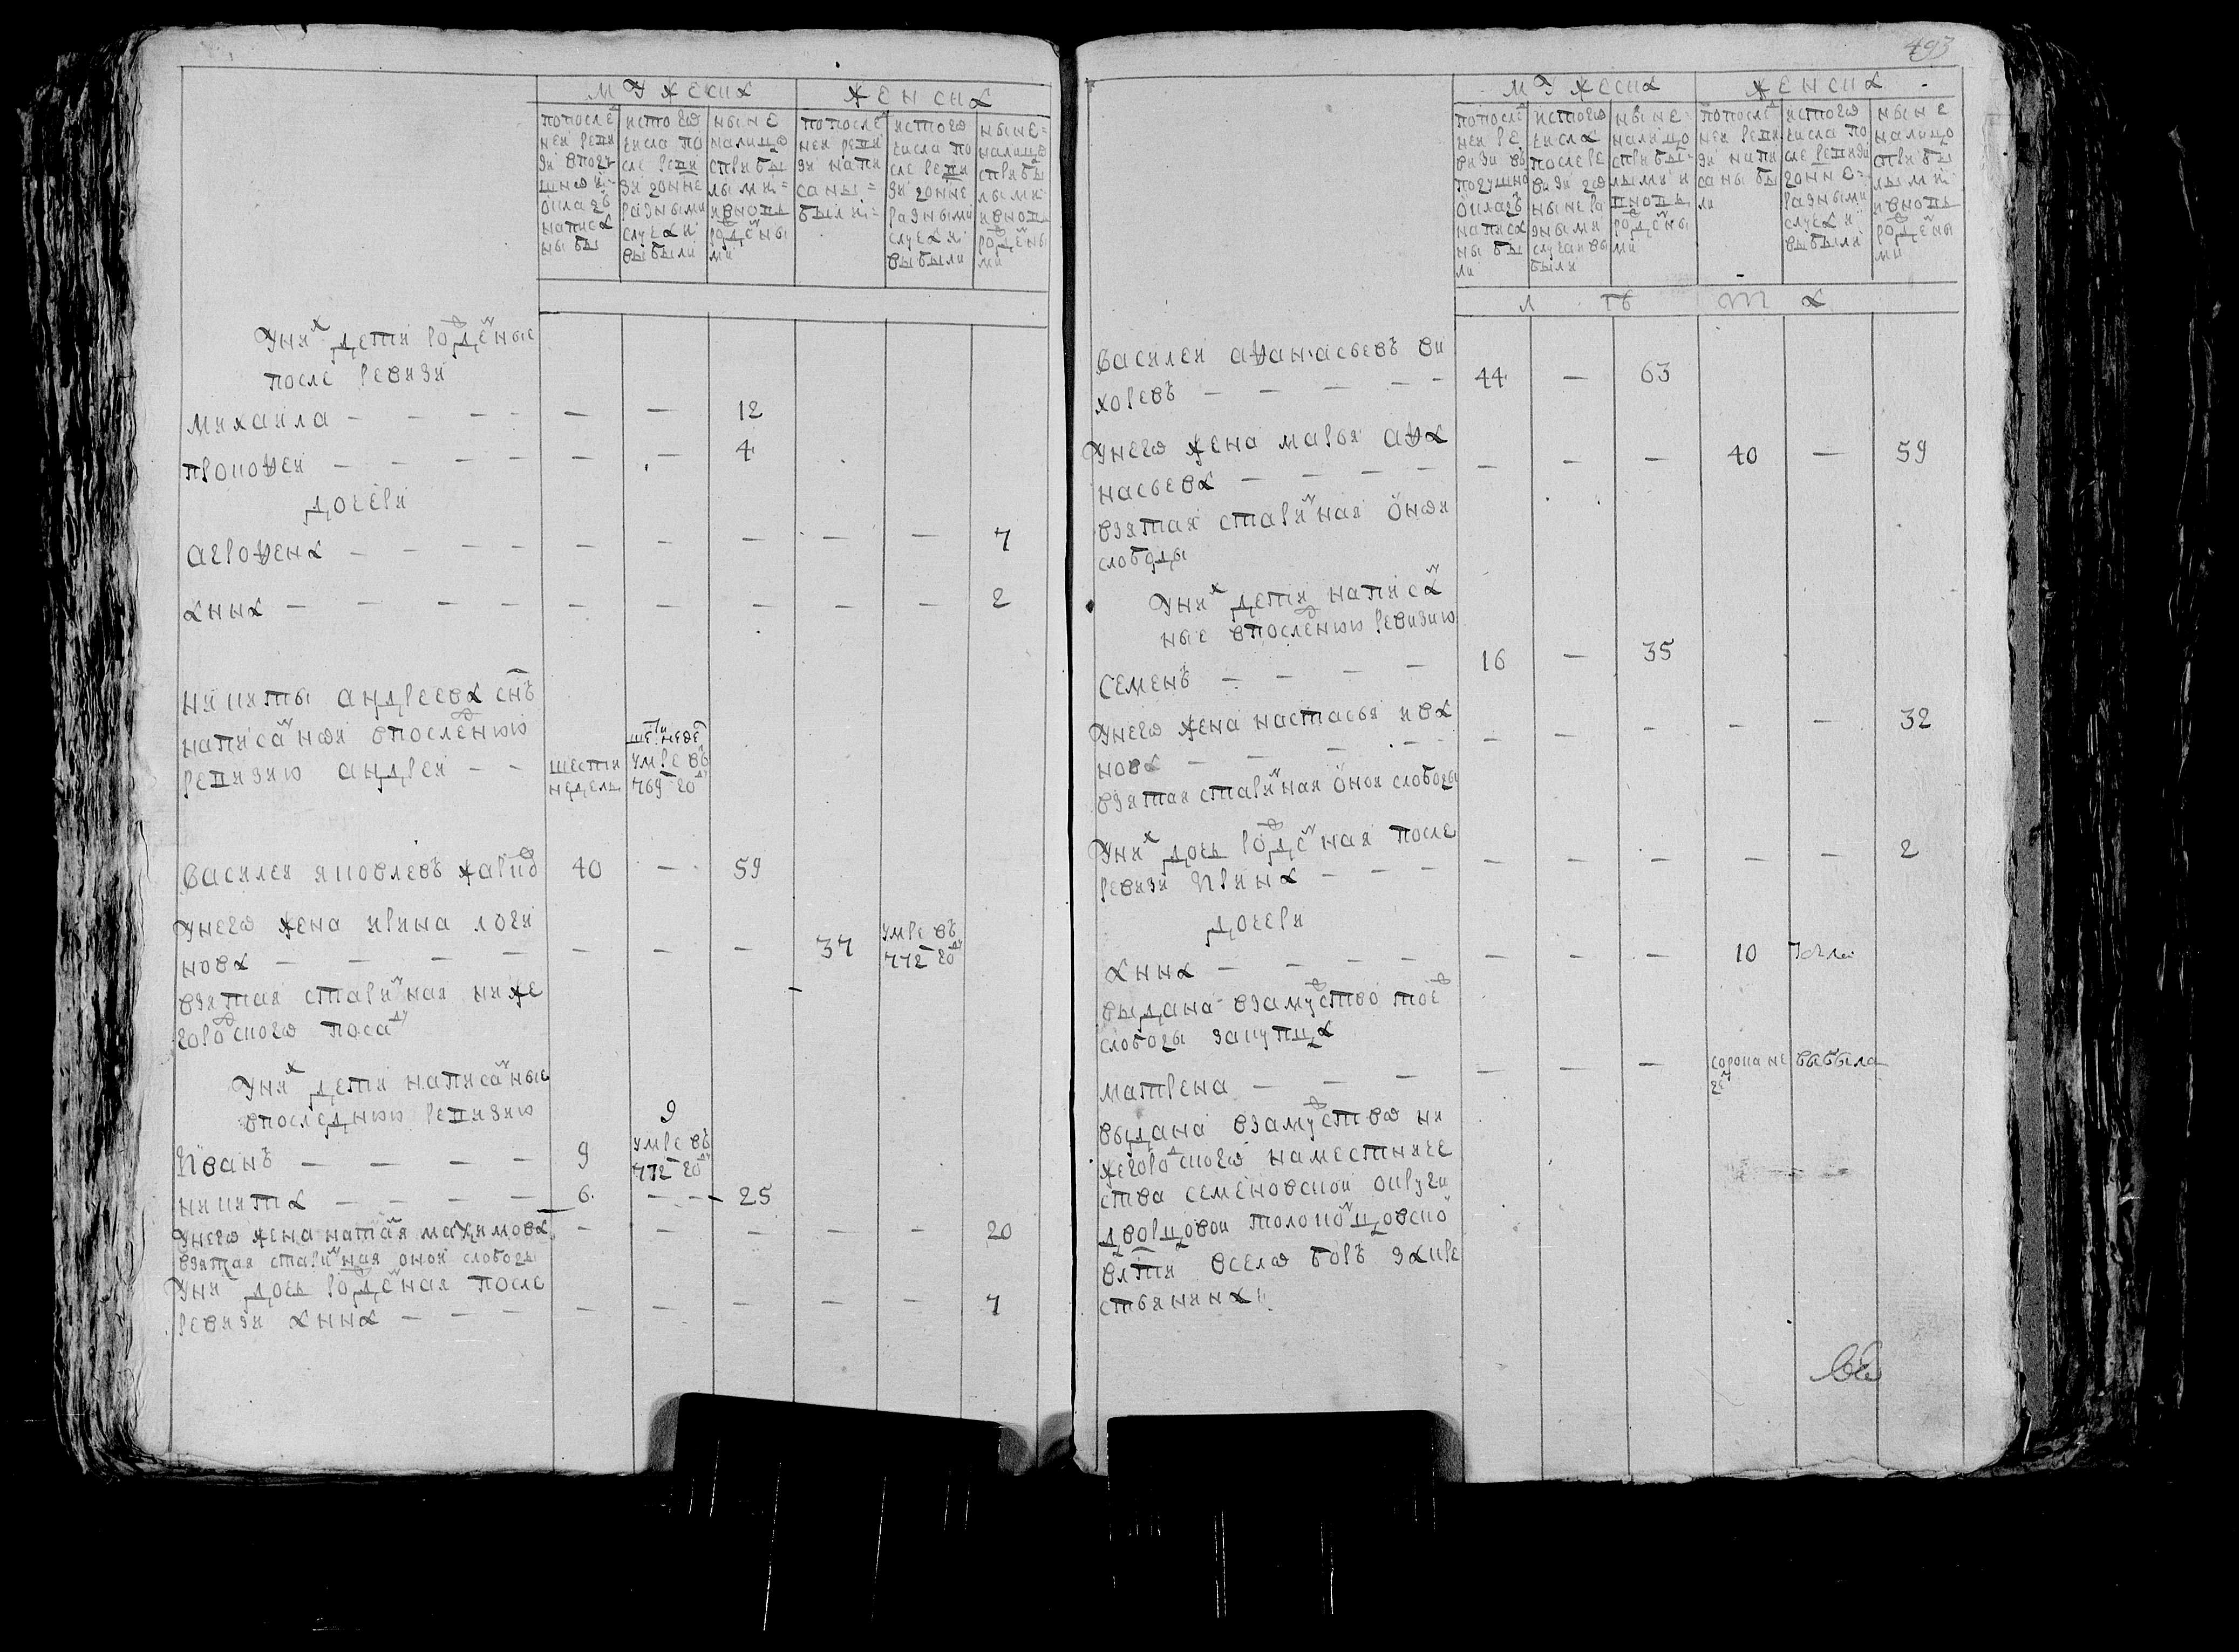 мужеска
женска
попослѣд
ней реви
зи вподу
шной
окладъ
написа
ны бы
истого
числа по
сле реви
зи донне
разными
случаи
выбыли
ныне
налицо
сприбы
лыми
ивновь
рожденны
ми
попослѣд
ней реви
зи напи
саны
были
истого
числа по
сле реви
зи донне
разными
случаи
выбыли
ныне
налицо
сприбы
лыми
ивновь
рожденны
ми
Уних дети рожденые
после ревизи
михаила — — — — — — 12
прокофеи — — — — — — 4
дочери
агрофена — — — — — — — — — 7
анна — — — — — — — — — 2
никиты андреева снъ
написанои впоследнюю
ревизию андреи — — шести недель
умре въ 769 год
василеи яковлевъ 40 — 59
Унего жена ирина логи
нова — — — — — — — 37 умре въ 772 год
взятая старинная ниже
городского посаду
Уних дети написаные
впоследнюю ревизию
Иванъ — — — — 9 9 умре въ 772 год
никита — — — — 6 — 25
Унего жена маѯимова — — — — — 20
взятая старинная оной слободы
Уних дочь рожденая после
ревизи анна — — — — — — — — 7
493
мужеска
женска
попослѣд
ней ре
визи въ
подушно
окладъ
написа
ны бы
ли
истого
числа
после ре
визи до
ныне ра
зными
случаи вы
были
ныне
налицо
сприбы
лыми и
вновь
рожденны
ми
попослѣд
ней реви
зи напи
саны бы
ли
истого
числа по
сле ревизи
донне
разными
случаи
выбыли
ныне
налицо
сприбы
лыми
ивновь
рожденны
ми
л ѣ т а
василеи афанасьевъ ви
хоревъ — — — — — 44 — 63
Унего жена марья афа
насьева — — — — — — — 40 — 59
взятая старинная оной
слободы
Уних дети написан
ные впоследнюю ревизию
семенъ — — — — 16 — 35
Унего жена настасья ива
нова — — — — — — — — 32
взятая старинная оной слободы
Уних дочь рожденая после
ревизи Ирина — — — — — — — — 2
дочери
анна — — — — — — — 10
выдана взамужство тоеж
слободы закупца
матрена — — — — — — сорока не выбыла
выдана взамужство ни
жегородского наместниче
ства семеновской округи
дворцовои толоконцовско
влти вселю боръ закре
стьянина